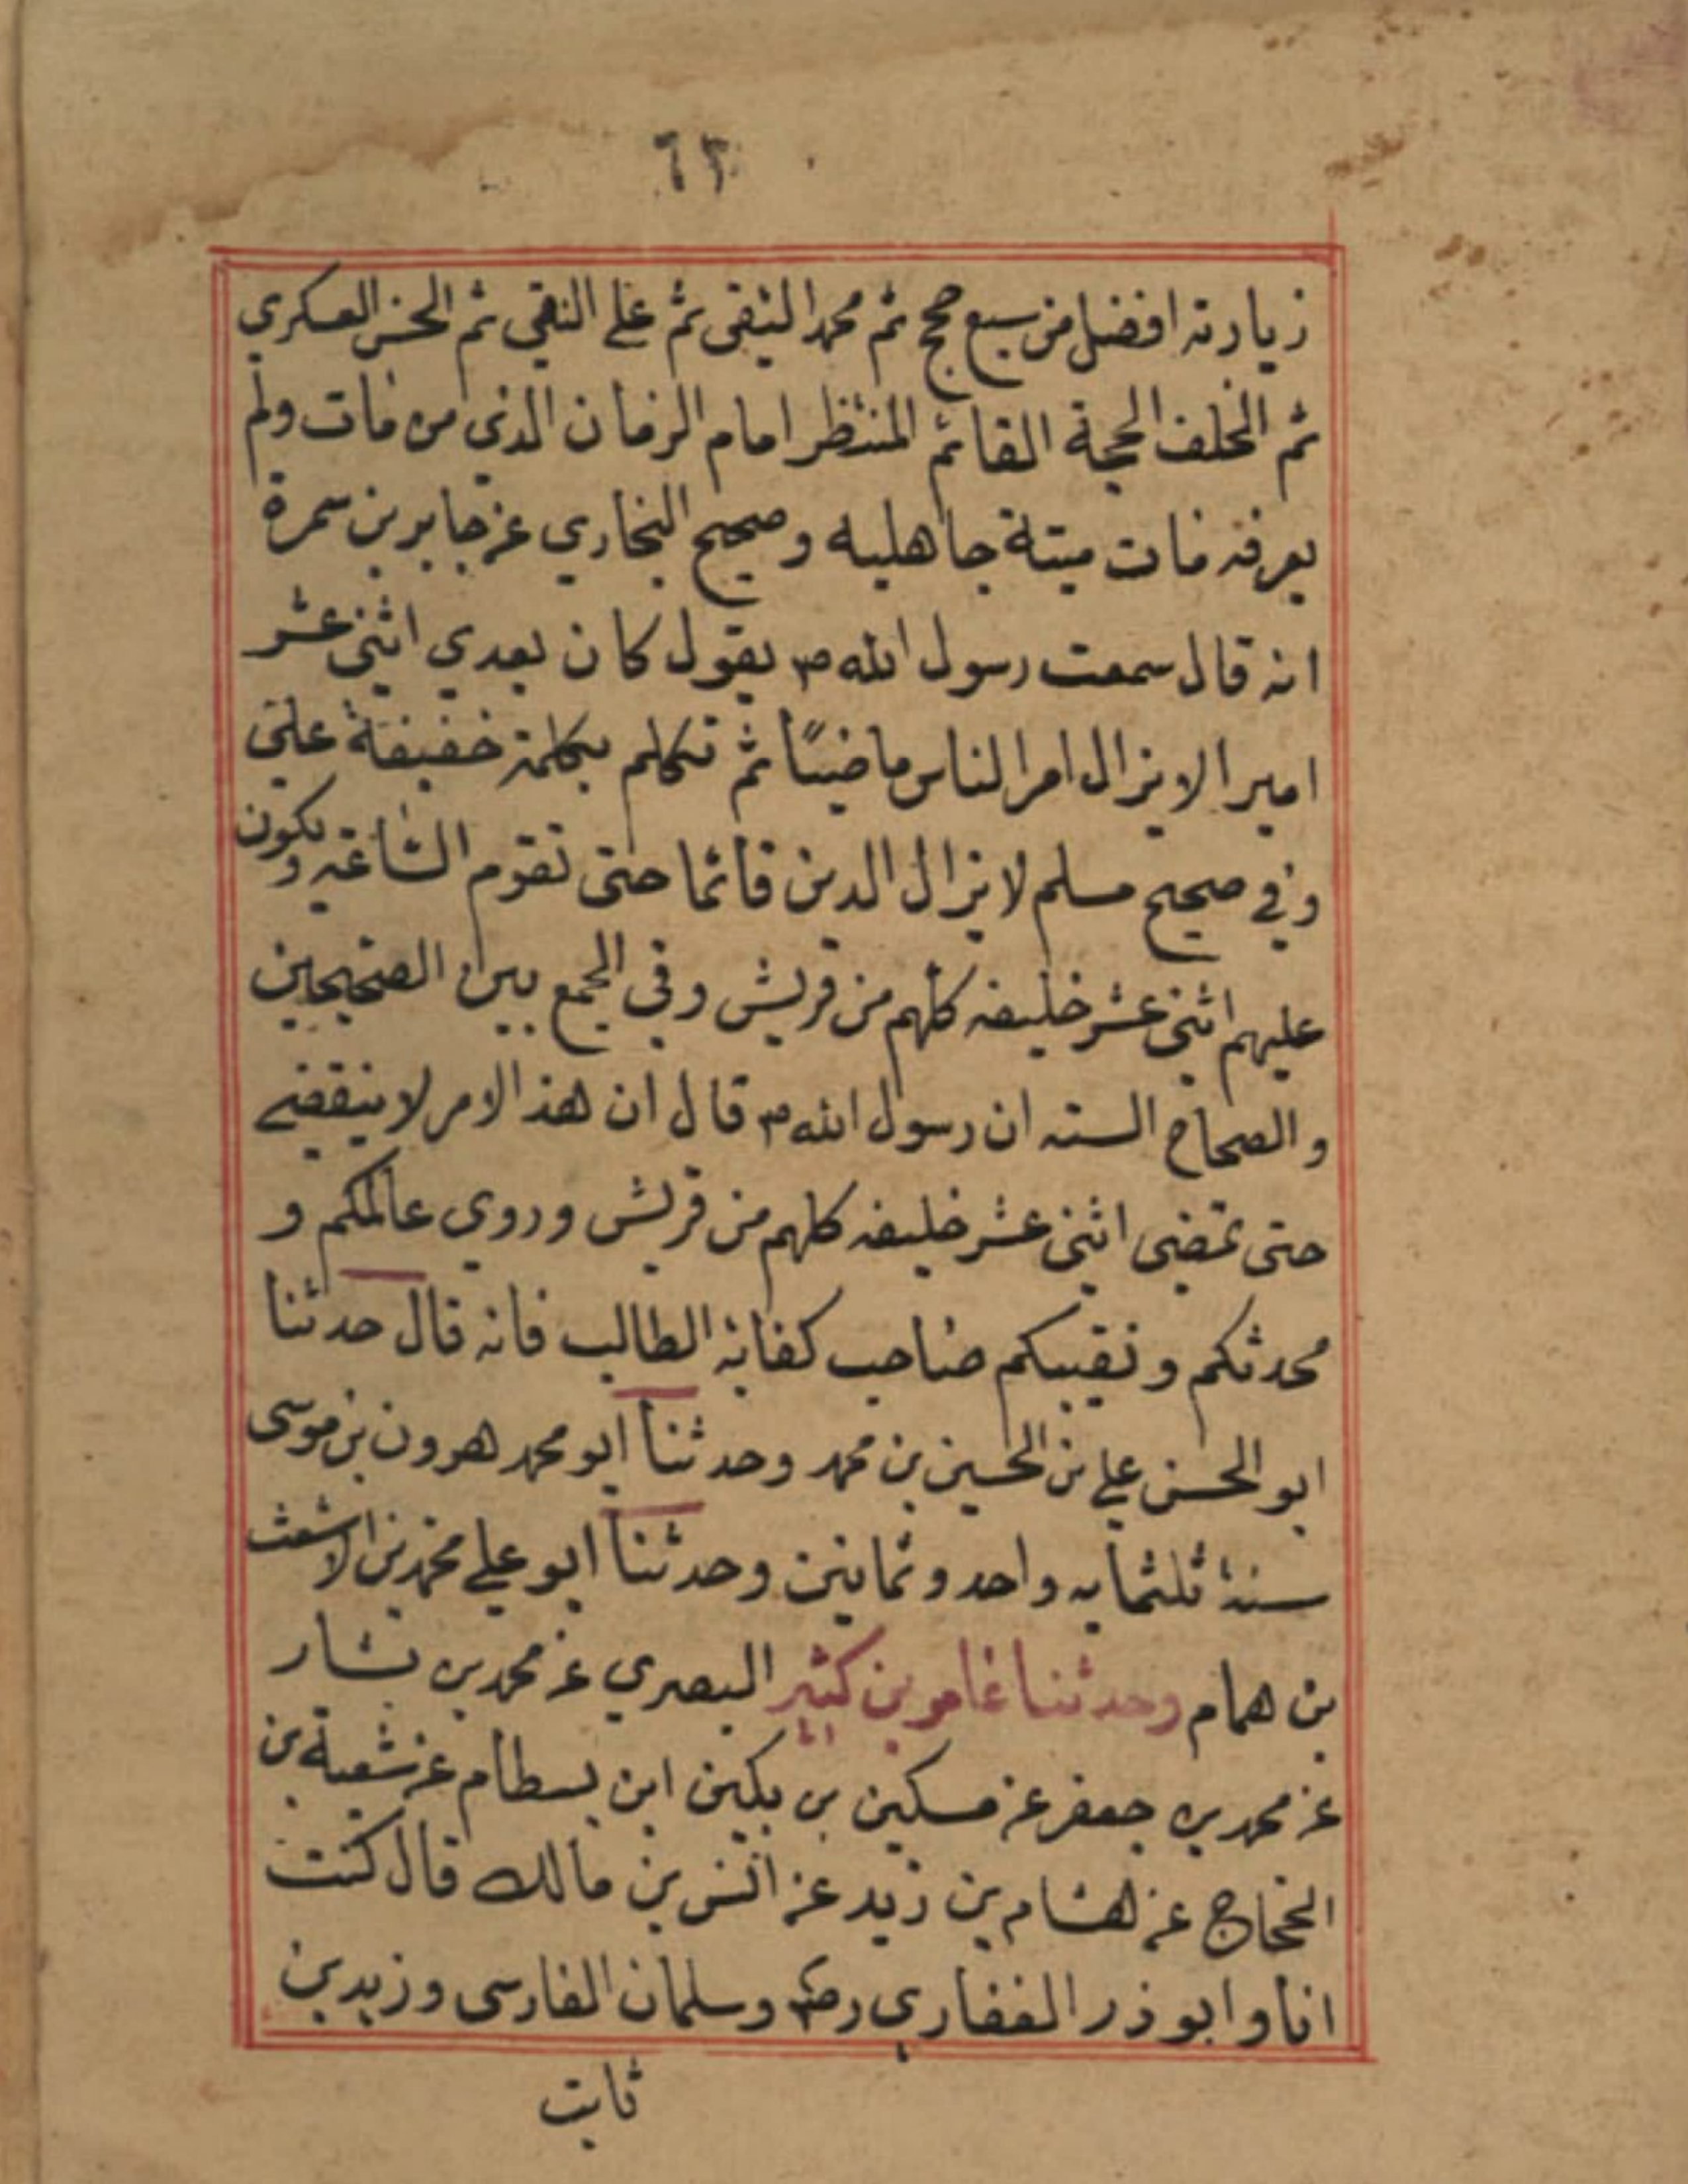 ٦٢
زيارته افضل من سبع حجج ثم محمد التقى ثم علي النقي ثم الحسن العسكري
ثم الخلف الحجة القائم المنتظر امام الزمان الذي من مات ولم
يعرفه مات ميتة جاهليه وصحيح البخاري عن جابر بن سمرة
انه قال سمعت رسول الله ص يقول كان بعدي اثنى عشر
اميرا لا يزال امر الناس ماضيًا ثم تكلم بكلمة خفيفة علي
وفي صحيح مسلم لا يزال الدين قائما حتى تقوم الساعة ويكون
عليهم اثنى عشر خليفه كلهم من قريش وفي الجمع بين الصحيحين
والصحاح السته ان رسول الله ص قال ان هذ الامر لا ينقضي
حتى تمضى اثنى عشر خليفه كلهم من قريش وروي عالمكم و
محدثكم ونقيبكم صاحب كفاية الطالب فانه قال حدثنا
ابو الحسن علي بن الحسين بن محمد وحدثنا ابو محمد هرون بن موسى
سنة ثلثمايه واحد وثمانين وحدثنا ابو علي محمد بن الاشعث
بن همام وحدثنا عامر بن كثير البصري عن محمد بن بشار
عن محمد بن جعفر عن مسكين بن بكين ابن بسطام عن شعبة بن
الحجاج عن هشام بن زيد عن انس بن مالك قال كنت
انا وابو ذر الغفاري رضه وسلمان الفارسى وزيد بن
ثابت